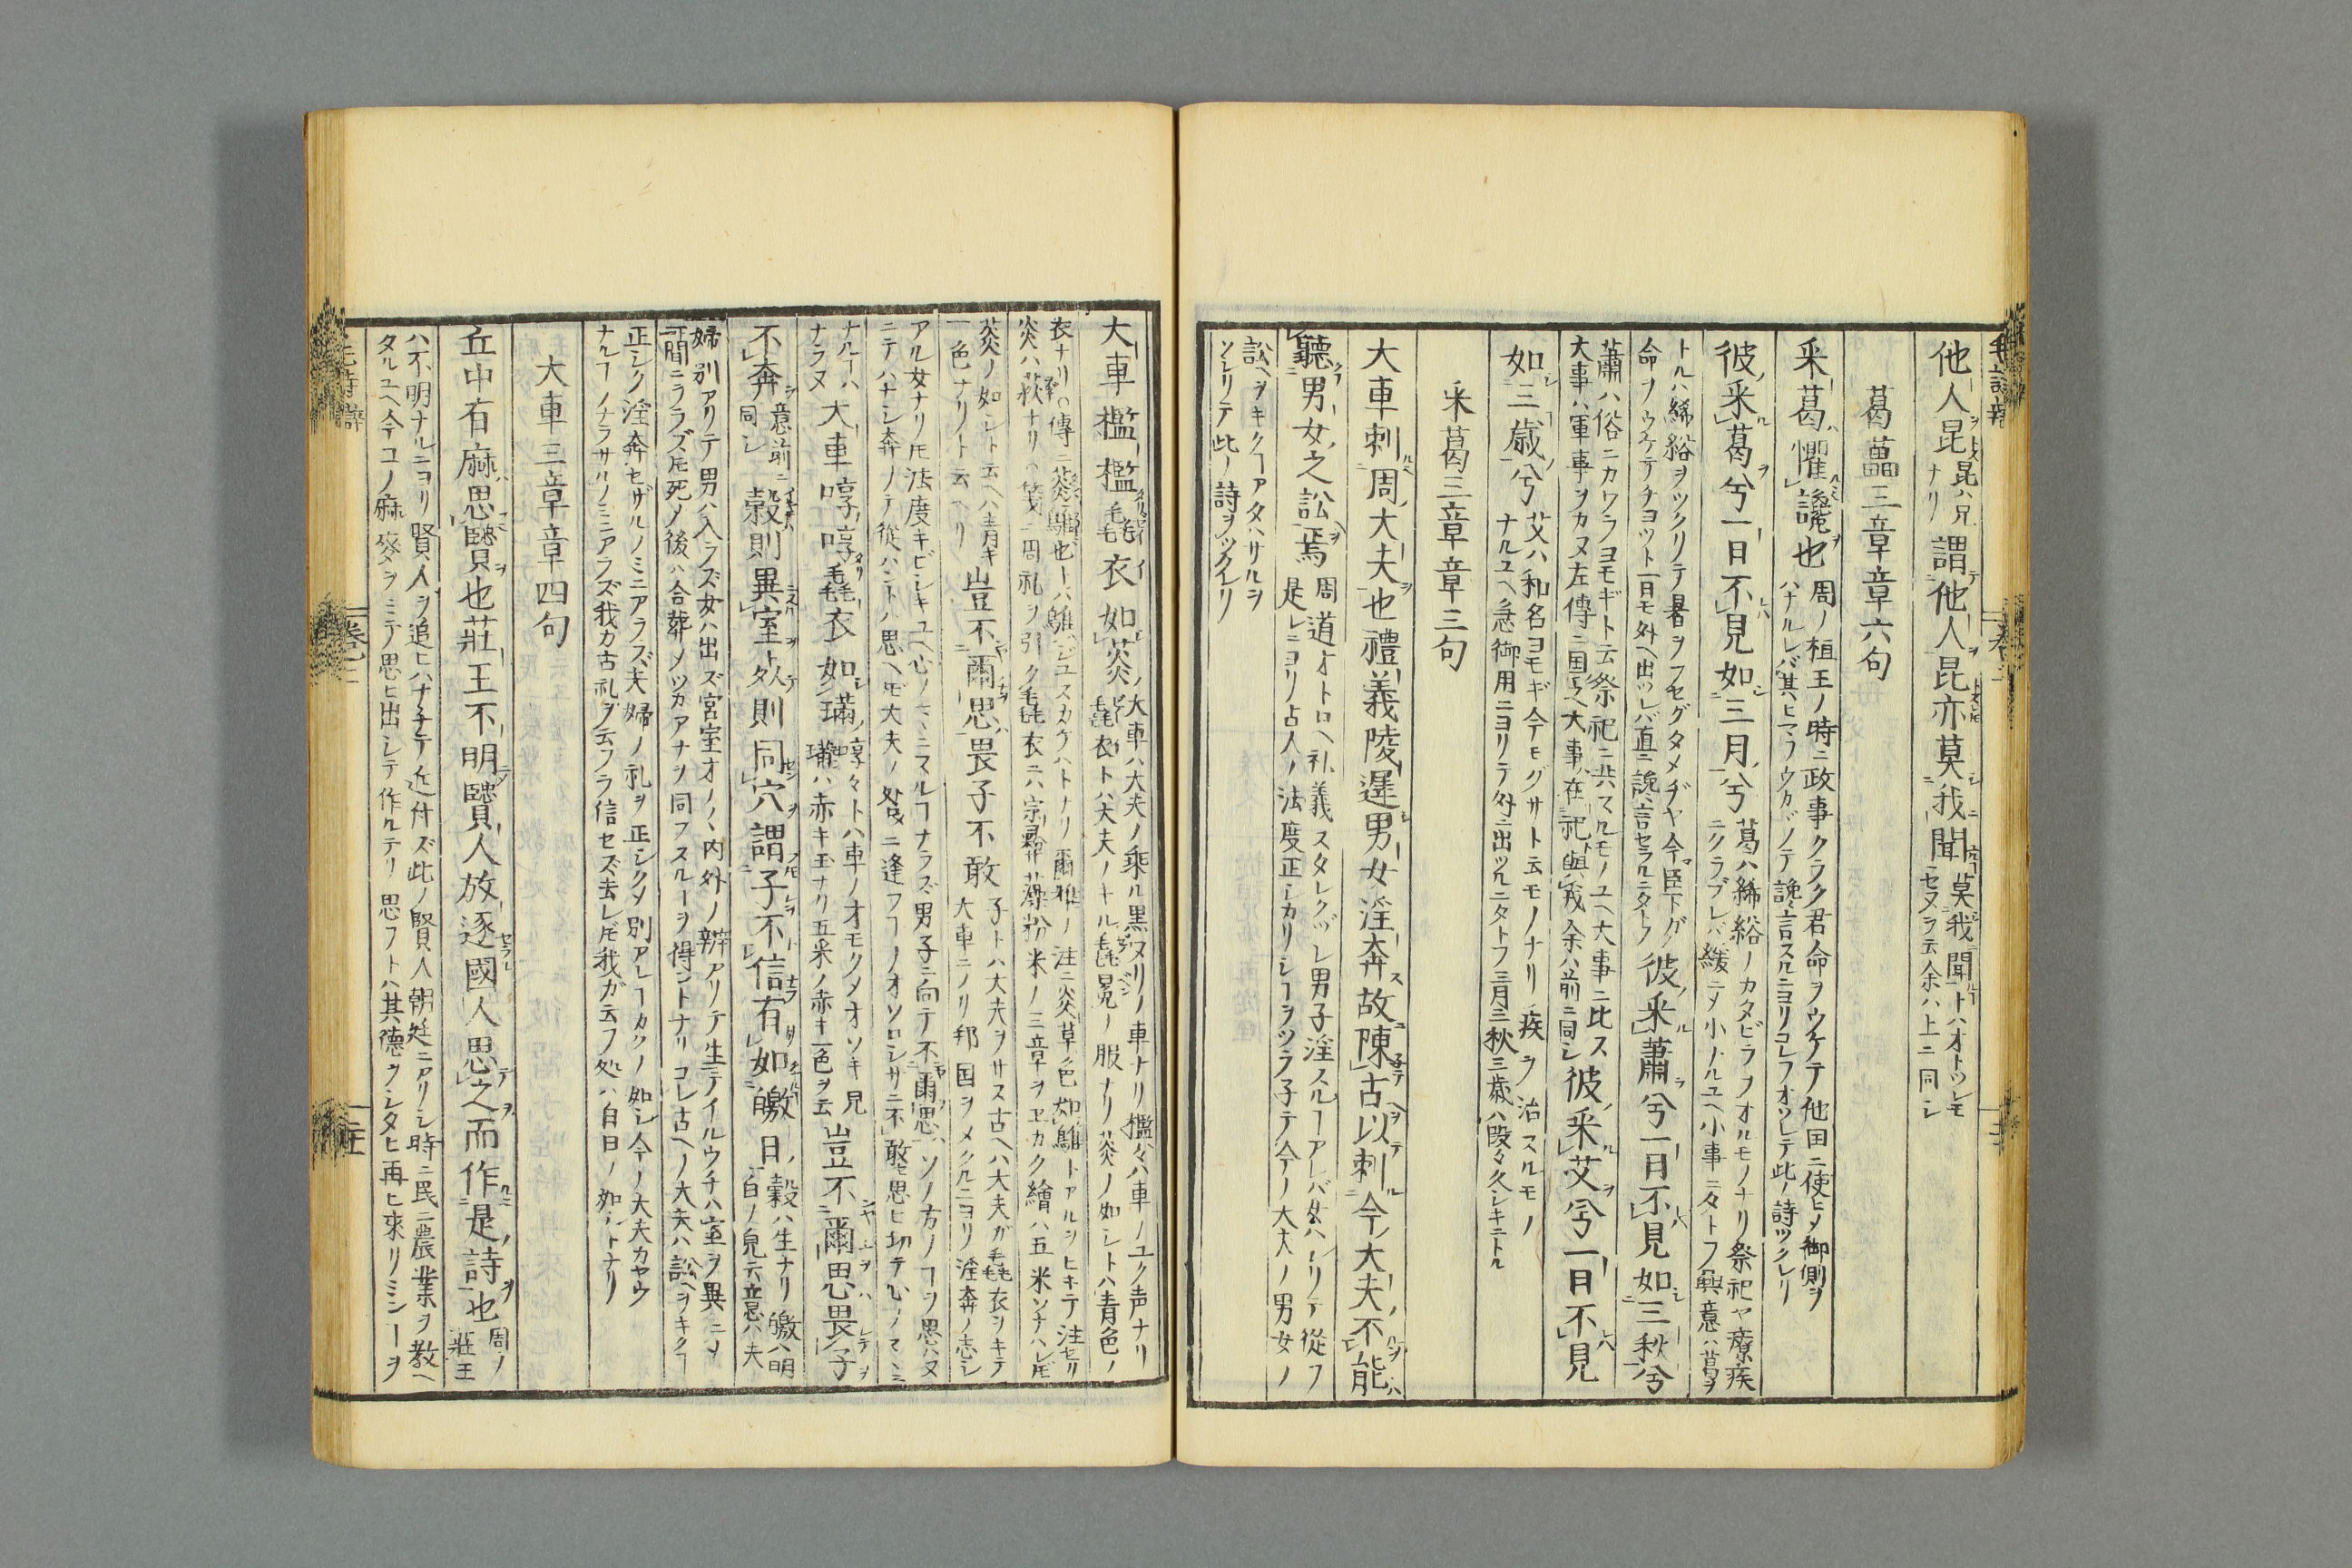 他人昆昆ハ兄ナリ謂他人昆亦莫我聞莫我聞トハオトツレモセヌヲ云余ハ上ニ同シ
葛藟三章章六句
采葛懼讒也周ノ桓王ノ時ニ政事クラク君命ヲウケテ他国ニ使ヒメ御側ヲハナルレバ其ヒマヲウカヾノテ讒言スルニヨリコレヲオソレテ此ノ詩ツクレリ
彼采葛兮一日不見如三月兮葛ハ絺綌ノカタビラヲオルモノナリ祭祀ヤ療疾ニクラブレバ緩ニメ小ノルユヘ小事ニタトフ興意ハ葛ヲ
トルハ絺綌ヲツクリテ暑ヲフセグタメヂヤ今臣下ガ命ヲウケテチヨツト一日モ外ヘ出ツレバ直ニ讒言セラルニタトフ彼采蕭兮一日不見如三秋兮
蕭ハ俗ニカワラヨモギト云祭祀ニ共スルモノユヘ大事ニ比ス大事ハ軍事ヲカヌ左傳ニ国之大事在祀與戎余ハ前ニ同シ彼采艾兮一日不見
如三歳兮艾ハ和名ヨモギ今モグサト云モノナリ疾ヲ治スルモノナルユヘ急御用ニヨリテ外ニ出ツルニタトフ三月三秋三歳ハ段々久シキニトル
采葛三章章三句
大車刺周大夫也禮義陵遲男女淫奔故陳古以刺今大夫不能
聽男女之訟焉周道オトロヘ礼義スタレクヅレ男子淫スルヿアレバ女ハシリテ從フ是レニヨリ占人ノ法度正シカリシヿヲツラ子テ今ノ大夫ノ男女ノ
訟ヘヲキクヿアタハサルヲソシリテ此ノ詩ヲツクレリ
大車檻檻毳衣如菼大車ハ大夫ノ乗ル黒ヌリノ車ナリ檻々ハ車ノユク声ナリ毳衣トハ大夫ノキル毳冕ノ服ナリ菼ノ如シトハ青色ノ
衣ナリ○傳ニ菼鵻也トハ鵻ハジユスカケハトナリ爾雅ノ注ニ菼草色如鵻トアルヲヒキテ注セリ菼ハ萩ナリ○箋ニ周礼ヲ引ク毳衣ニハ宗彝藻粉米ノ三章ヲヱカク繪ハ五米ソナハレ𪜈
菼ノ如シト云ヘハ青キ一色ナリト云ヘリ豈不爾思畏子不敢子トハ大夫ヲサス古ヘハ大夫ガ毳衣ヲキテ大車ニノリ邦国ヲメクルニヨリ淫奔ノ志シ
アル女ナリ𪜈法度キビシキユヘ心ノマヽニスルヿナラズ男子ニ向テ不爾思ハソノ方ノヿヲ思ハヌニテハナシ奔ノテ從ハントハ思ヘ𪜈大夫ノ咎ニ逢フヿノオソロシサニ不敢思ヒ切テ心ノマヽニ
ナルヿハナラヌ大車啍啍毳衣如璊啍々トハ車ノオモクメオソキ皃璊ハ赤キ玉ナリ五釆ノ赤キ一色ヲ云豈不爾思畏子
不奔意前ニ同シ穀則異室死則同穴謂子不信有如皦日穀ハ生ナリ皦ハ明白ノ皃云意ハ夫
婦別アリテ男ハ入ラズ女ハ出ズ宮室オノ丶内外ノ辨アリテ生テイルウチハ室ヲ異ニメ間ニラズ𪜈死ノ後ハ合葬メツカアナヲ同フスルヿヲ得ントナリコレ古ヘノ大夫ハ訟ヘヲキクヿ
正シク淫奔セザルノミニアラズ夫婦ノ礼ヲ正シクメ別アルヿカクノ如シ今ノ大夫カヤウナルヿノナラサルノミニアラズ我カ古礼ヲ云フヲ信セズ去レ𪜈我ガ云フ処ハ白日ノ如シトナリ
大車三章章四句
丘中有麻思賢也莊王不明賢人放逐國人思之而作是詩也周ノ莊王
ハ不明ナルニヨリ賢人ヲ追ヒハナ子テ近付ズ此ノ賢人朝廷ニアリシ時ニ民ニ農業ヲ教ヘタルユヘ今コノ麻麥ヲミテ思ヒ出シテ作ルナリ思フトハ其德ヲシタヒ再ヒ来リミシヿヲ